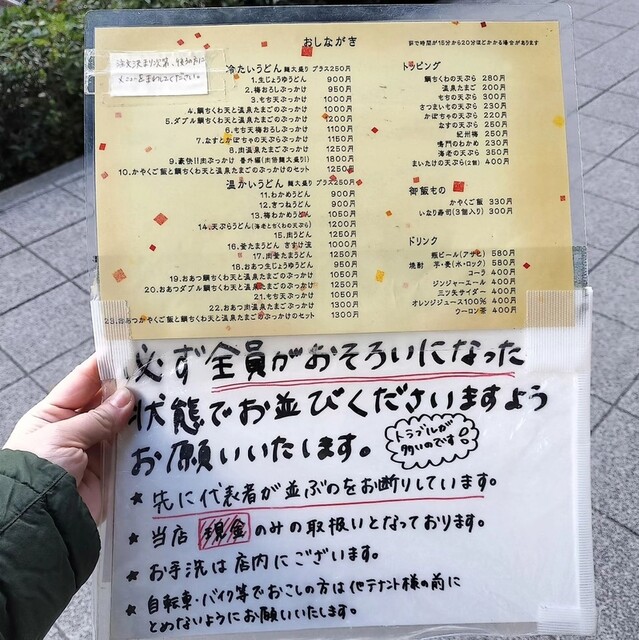 おしながき
茹で時間が15分から20分ほどかかる場合があります
メニューをまわしてください。
冷たいうどん 麺大盛り プラス250円
1.生じょうゆうどん 900円
2.梅おろしぶっかけ 950円
3.もち天ぶっかけ 1000円
4.鯛ちくわ天と温泉たまごのぶっかけ 1100円
5.ダブル鯛ちくわ天と温泉たまごのぶっかけ 1200円
6.もち天梅おろしぶっかけ 1100円
7.なすとかぼちゃの天ぷらぶっかけ 1150円
8.肉温泉たまごぶっかけ 1250円
9.豪快!!肉ぶっかけ 番外編(肉倍麺大盛り) 1800円
10.かやくご飯と鯛ちくわ天と温泉たまごのぶっかけのセット 1250円
温かいうどん 麺大盛り プラス250円
11.わかめうどん 900円
12.きつねうどん 900円
13.梅わかめうどん 1050円
14.天ぷらうどん(海老とちくわの天ぷら) 1200円
15.肉うどん 1250円
16.釜たまうどん さすけ流 1000円
17.肉釜たまうどん 1250円
18.おあつ生じょうゆうどん 950円
19.おあつ鯛ちくわ天と温泉たまごのぶっかけ 1150円
20.おあつダブル鯛ちくわ天と温泉たまごのぶっかけ 1250円
21.もち天ぶっかけ 1050円
22.おあつ肉温泉たまごぶっかけ 1300円
23.おあつかやくご飯と鯛ちくわ天と温泉たまごのぶっかけのセット 1300円
トッピング
鯛ちくわの天ぷら 280円
温泉たまご 200円
もちの天ぷら 300円
さつまいもの天ぷら 230円
かぼちゃの天ぷら 220円
なすの天ぷら 250円
紀州梅 250円
鳴門のわかめ 230円
海老の天ぷら 350円
まいたけの天ぷら(2個) 400円
御飯もの
かやくご飯 330円
いなり寿司(3個入り) 300円
ドリンク
瓶ビール(アサヒ) 580円
焼酎 芋・麦(水・ロック) 580円
コーラ 400円
ジンジャーエール 400円
三ツ矢サイダー 400円
オレンジジュース100% 400円
ウーロン茶 400円
必ず全員がおそろいになった
状態でお並びくださいますよう
お願いいたします。
トラブルが
多いのです
★ 先に代表者が並ぶのをお断りしています。
★ 当店 現金 のみの取扱いとなっております。
★ お手洗は店内にございます。
★ 自転車・バイク等でおこしの方は他テナント様の前に
とめないようにお願いいたします。